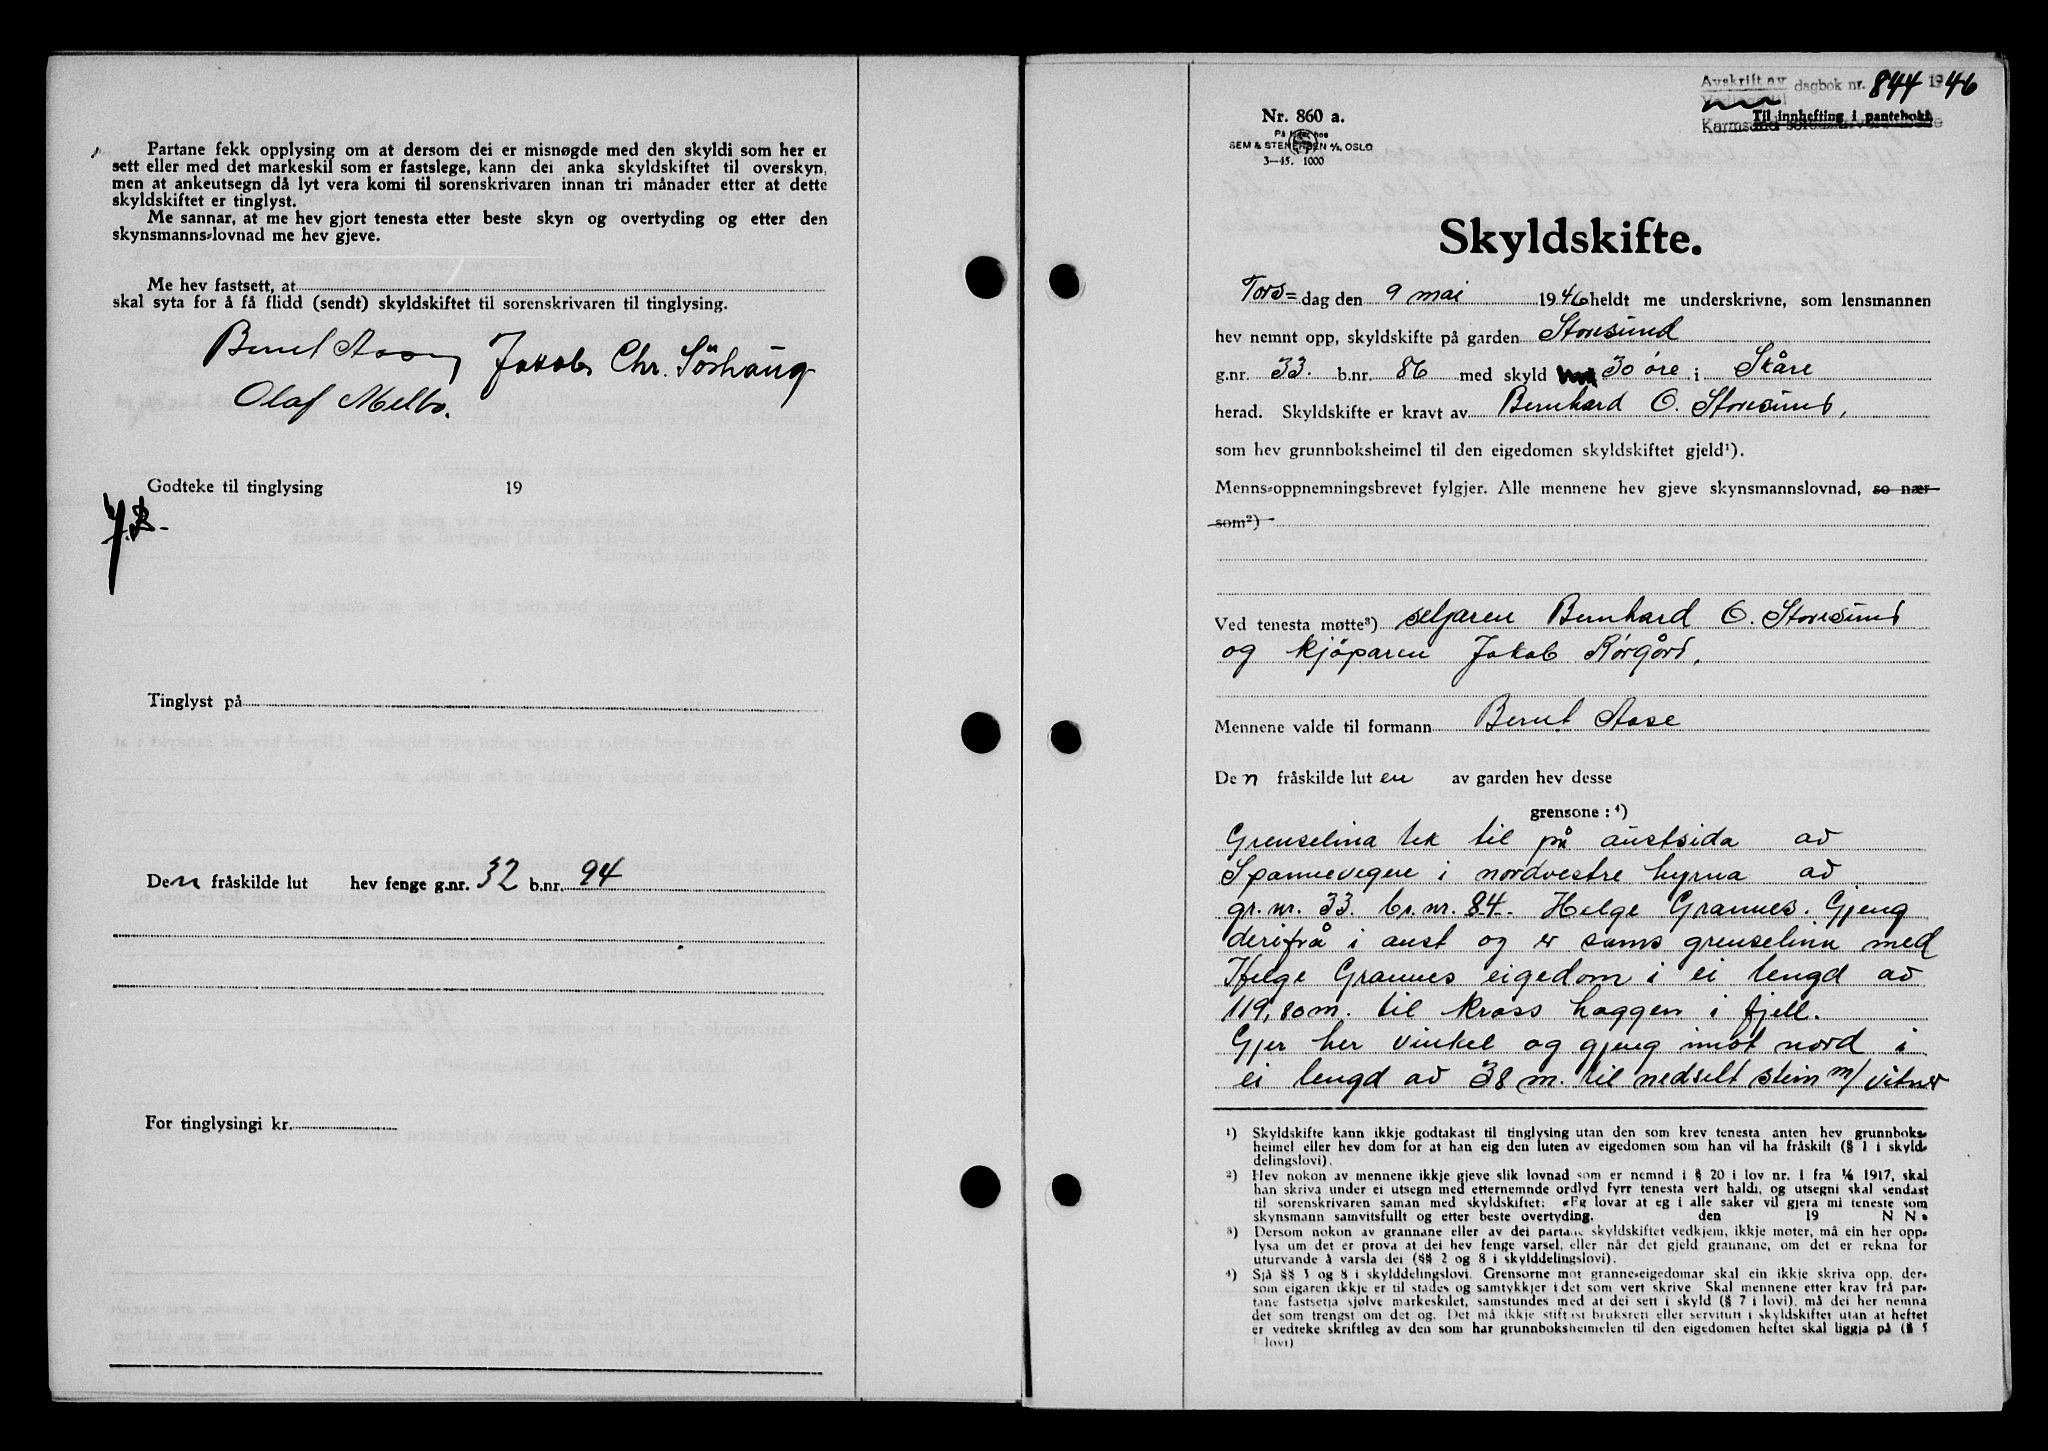 Partane fekk opplysing om at dersom dei er misnøgde med den skyldi som her er
sett eller med det markeskil som er fastslege, kann dei anka skyldskiftet til overskyn,
men at ankeutsegn då lyt vera komi til sorenskrivaren innan tri månader etter at dette
skyldskiftet er tinglyst.
Me sannar, at me hev gjort tenesta etter beste skyn og overtyding og etter den
skynsmanns-lovnad me hev gjeve.
Me hev fastsett, at
skal syta for å få flidd (sendt) skyldskiftet til sorenskrivaren til tinglysing.
Bernt Aase Jakob Chr. Sörhaug
Olaf Melbo.
Godteke til tinglysing 19
Tinglyst på
Den fråskilde lut hev fenge g.nr. 32 b.nr. 94
For tinglysingi kr.
Avskrift av dagbok nr. 844 1946
Nr. 860 a. Til innhefting i pantebok
Karmsund sorenskriverembete
På lager hos
SEM & STENERSEN A/S, OSLO
3-45. 1000
Skyldskifte.
Tors=dag den 9 mai 1946 heldt me underskrivne, som lensmannen
hev nemnt opp, skyldskifte på garden Storesund
g.nr. 33. b.nr. 86 med skyld 30 öre i Skåre
herad. Skyldskifte er kravt av Bernhard O. Storesund,
som hev grunnboksheimel til den eigedomen skyldskiftet gjeld¹).
Menns-oppnemningsbrevet fylgjer. Alle mennene hev gjeve skynsmannslovnad, so nær
som²)
Ved tenesta møtte³) seljaren Bernhard O. Storesund
og kjöparen Jakob Rørgård.
Mennene valde til formann Bernt Aase
Den fråskilde luten av garden hev desse
grensone: ⁴)
Grenselina tek til på austsida av
Spannevegen i nordvestre hyrna av
gr. nr. 33. br. nr. 84. Helge Grannes. Gjeng
derifrå i aust og er sams grenselina med
Helge Grannes eigedom i ei lengd av
119,80 m. til kross haggen i fjell.
Gjer her vinkel og gjeng imot nord i
ei lengd av 38 m. til nedselt stein m/ vitner
¹) Skyldskifte kann ikkje godtakast til tinglysing utan den som krev tenesta anten hev grunnboks-
heimel eller hev dom for at han eig den luten av eigedomen som han vil ha fråskilt (§ 1 i skyld-
delingslovi).
²) Hev nokon av mennene ikkje gjeve slik lovnad som er nemnd i § 20 i lov nr. 1 fra 1/6 1917, skal
han skriva under ei utsegn med etternemnde ordlyd fyrr tenesta vert haldi, og utsegni skal sendast
til sorenskrivaren saman med skyldskiftet: «Eg lovar at eg i alle saker vil gjera mi teneste som
skynsmann samvitsfullt og etter beste overtyding. den 19 N N.
³) Dersom nokon av grannane eller av dei partane skyldskiftet vedkjem, ikkje møter, må ein her opp-
lysa um det er prova at dei hev fenge varsel, eller når det gjeld grannane, om det er rekna for
uturvande å varsla dei (§§ 2 og 8 i skylddelingslovi).
⁴) Sjå §§ 3 og 8 i skylddelingslovi. Grensorne mot granne-eigedomar skal ein ikkje skriva opp, der-
som eigaren ikkje er til stades og samtykkjer i det som vert skrive. Skal mennene etter krav frå par-
tane fastsetja sjølve markeskilet, samstundes med at dei sett i skyld (§ 7 i lovi), må dei her nemna
det som trengst om det og. Det må ikkje stiftast bruksrett eller servitutt i skyldskiftet utan at heftet
er vedteke skriftleg av den som har grunnboksheimelen til den eigedomen heftet skal liggja på (§ 5
i lovi)